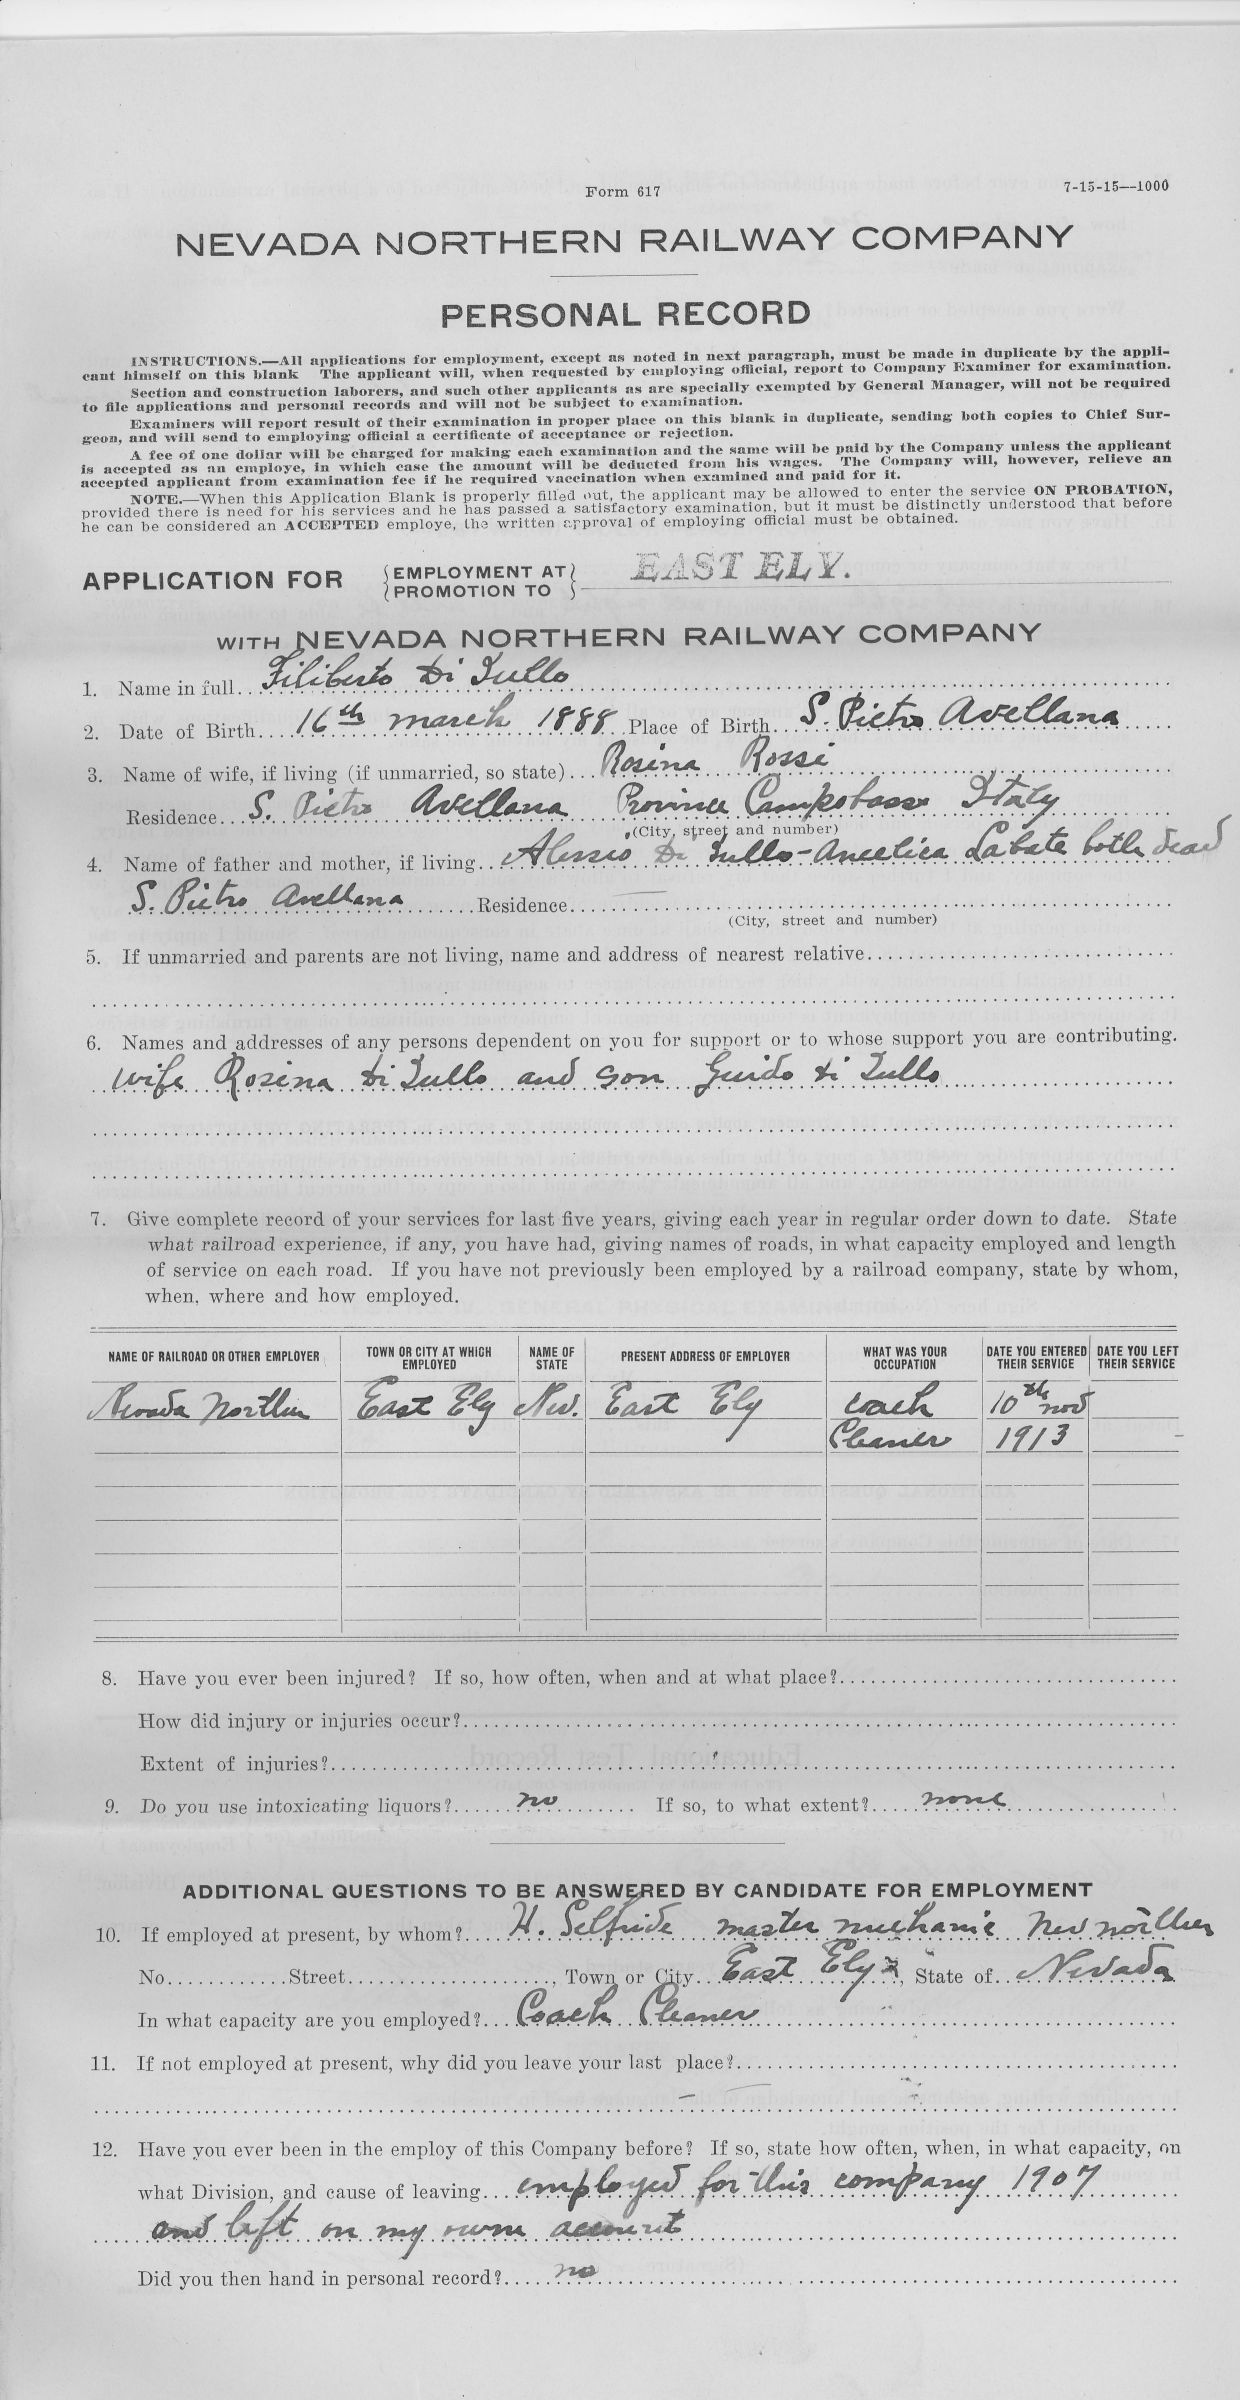 Form 617
7-15-15--1000
NEVADA NORTHERN RAILWAY COMPANY
PERSONAL RECORD
INSTRUCTIONS.—All applications for employment, except as noted in next paragraph, must be made in duplicate by the appli-
cant himself on this blank The applicant will, when requested by employing official, report to Company Examiner for examination.
Section and construction laborers, and such other applicants as are specially exempted by General Manager, will not be required
to file applications and personal records and will not be subject to examination.
Examiners will report result of their examination in proper place on this blank in duplicate, sending both copies to Chief Sur-
geon, and will send to employing official a certificate of acceptance or rejection.
A fee of one dollar will be charged for making each examination and the same will be paid by the Company unless the applicant
is accepted as an employe, in which case the amount will be deducted from his wages. The Company will, however, relieve an
accepted applicant from examination fee if he required vaccination when examined and paid for it.
NOTE.—When this Application Blank is properly filled out, the applicant may be allowed to enter the service ON PROBATION,
provided there is need for his services and he has passed a satisfactory examination, but it must be distinctly understood that before
he can be considered an ACCEPTED employe, the written approval of employing official must be obtained.
APPLICATION FOR {EMPLOYMENT AT} EAST ELY.
{PROMOTION TO }
WITH NEVADA NORTHERN RAILWAY COMPANY
1. Name in full.. Filiberto Di Tullo
2. Date of Birth.... 16th march 1888 Place of Birth... S. Pietro Avellana
3. Name of wife, if living (if unmarried, so state)... Rosina Rossi
Residence... S. Pietro Avellana Province Campobasso Italy
(City, street and number)
4. Name of father and mother, if living.. Alessio Di Tullo - Angelica Labate both dead
S. Pietro Avellana Residence
(City, street and number)
5. If unmarried and parents are not living, name and address of nearest relative
6. Names and addresses of any persons dependent on you for support or to whose support you are contributing.
wife Rosina di Tullo and son Guido di Tullo
7. Give complete record of your services for last five years, giving each year in regular order down to date. State
what railroad experience, if any, you have had, giving names of roads, in what capacity employed and length
of service on each road. If you have not previously been employed by a railroad company, state by whom,
when, where and how employed.
NAME OF RAILROAD OR OTHER EMPLOYER TOWN OR CITY AT WHICH EMPLOYED NAME OF STATE PRESENT ADDRESS OF EMPLOYER WHAT WAS YOUR OCCUPATION DATE YOU ENTERED THEIR SERVICE DATE YOU LEFT THEIR SERVICE
Nevada Northern East Ely Nev. East Ely coach 10th nov
Cleaner 1913
8. Have you ever been injured? If so, how often, when and at what place?
How did injury or injuries occur?
Extent of injuries?
9. Do you use intoxicating liquors? no If so, to what extent? none
ADDITIONAL QUESTIONS TO BE ANSWERED BY CANDIDATE FOR EMPLOYMENT
10. If employed at present, by whom? H. Selfride master mechanic Nev northern
No. Street , Town or City.. East Ely , State of.. Nevada
In what capacity are you employed? Coach Cleaner
11. If not employed at present, why did you leave your last place?
12. Have you ever been in the employ of this Company before? If so, state how often, when, in what capacity, on
what Division, and cause of leaving... employed for this company 1907
and left on my own account
Did you then hand in personal record? no